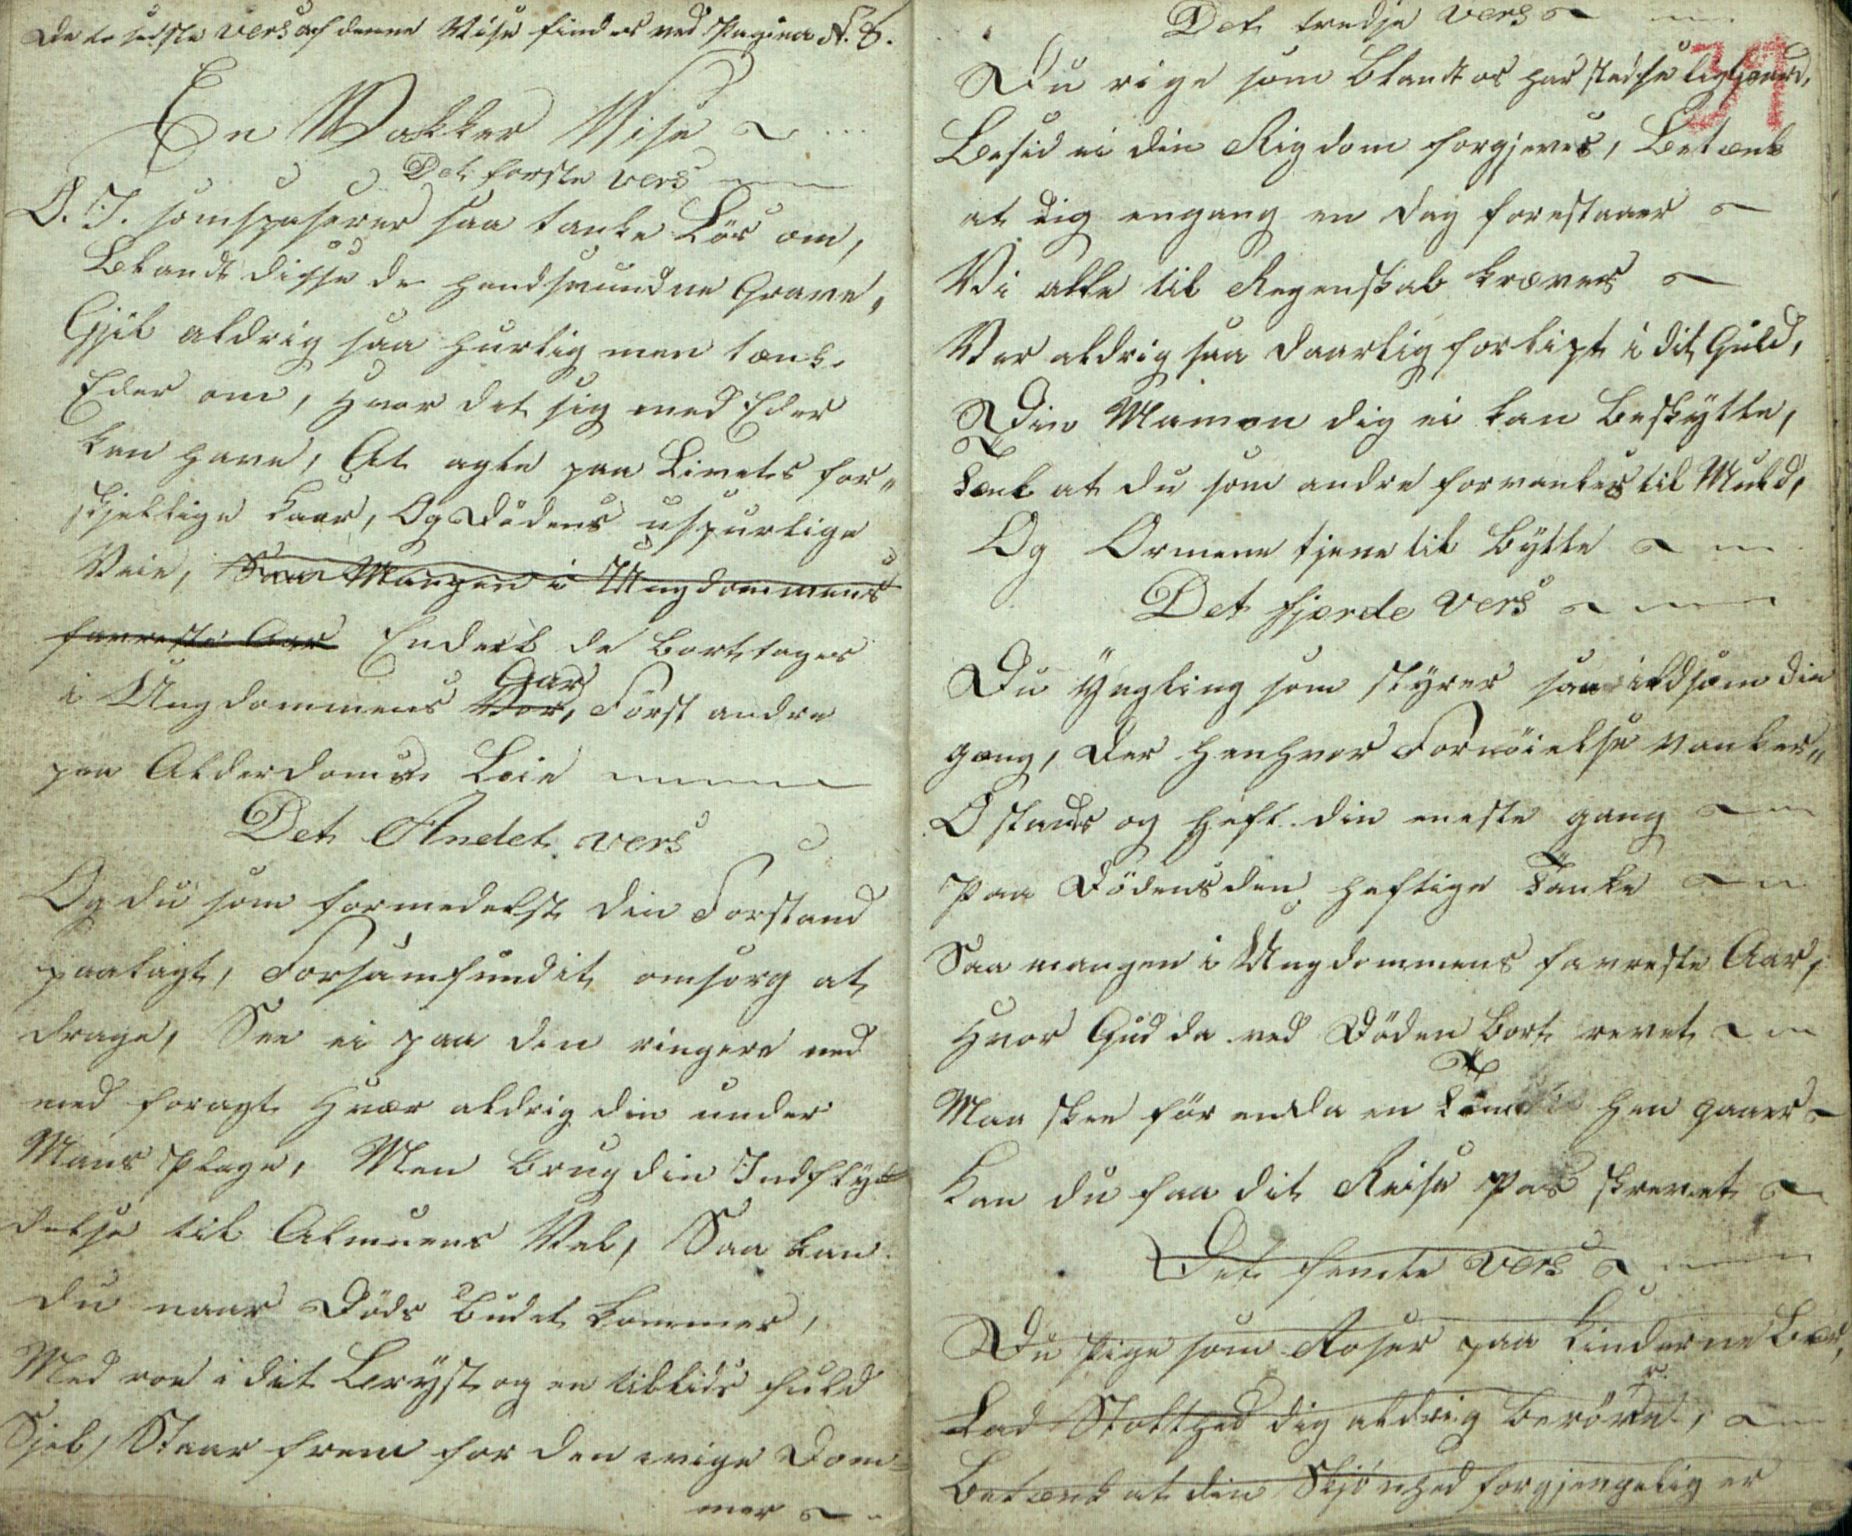 De to sidste vers af denne Vise findes ved Pagina N. 8.
En Vakker Vise
Det første vers
O. I. som spaserer saa tanke Løs om,
Blandt disse de hendsvundne Grave,
Gjik aldrig saa hurtig men tænk
Eder om, Hvor det sig med Eder
kan have, At agte paa Livets for„
skjellige kaar, Og Dødens uspurlige
Veie, Saa Mangen i Ungdommens
favreste Aar Endeel de borttages
i Ungdommens Vor, Aar Først andre
paa Alderdoms Leie
Det Andet vers
Og du som formedelst din Forstand
paalagt, Forsamfundit omsorg at
drage, See ei paa den ringere ned
med foragt Hvær aldrig din under
Mans Plage, Men brug din Indfly¬
delse til Almuens Vel, Saa kan
du naar Døds budet kommer,
Med roe i dit Bryst og en tillids fuld
Sjel, Staar frem for den evige Dom¬
mer
Det tredje vers
39
Du rige som blandt os har stedse
Besid ei din Rigdom forgjeves, Betænk
at dig engang en dag forestaaer
Vi alle til Regenskab kræves
Vær aldrig saa daarlig forlipt i dit Guld,
Din Mamon dig ei kan beskytte,
Tænk at du som andre forvanles til Muld,
Og Ormene tjene til bytte
Det fjerde vers
Du Yngling som styrer saa ildsom din
gang, der henhvor Fornøielse vanker„
O stands og heft din eneste gang
Paa Dødens den heftige Tanke
Saa mangen i Ungdommens favreste Aar,
Hvor Gud da ved Døden bort revet
Maa skee før enda en hen gaaer
Kan du faa dit Reise Pas skrevet
Det femte vers
Du Pige som Roser paa kinderne bær,
Lad Stolthed dig aldrig berøre,
Betænk at din Skjønhed forgjengelig er